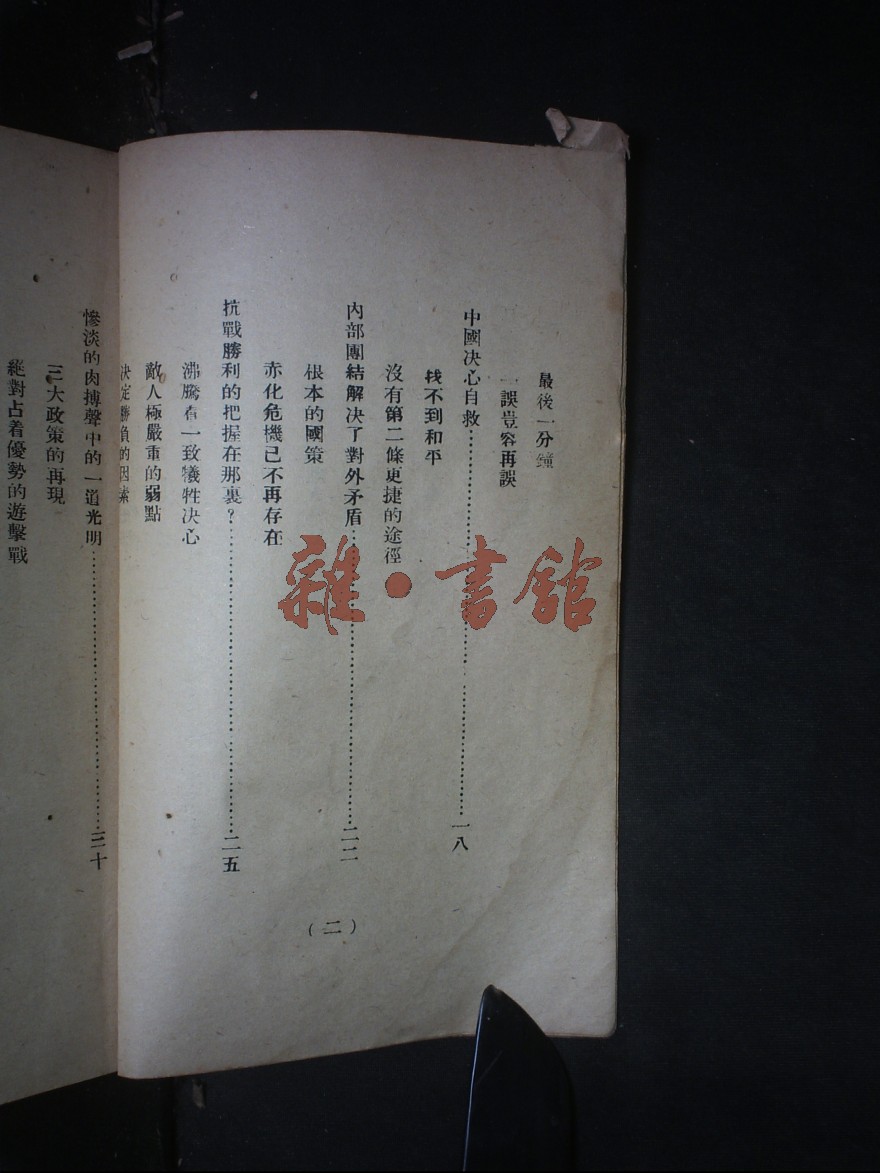 最後一分鐘
一誤豈容再誤
中國决心自救……一八
找不到和平
沒有第二條更捷的途徑
內部團結解决了對外矛盾……二二
根本的國策
赤化危機已不再存在
抗戰勝利的把握在那裏？……二五
沸騰着一致犧牲决心
敵人極嚴重的弱點
决定勝負的因素
慘淡的肉搏聲中的一道光明……三十
三大政策的再現
絕對占着優勢的遊擊戰
（二）
雜·書館